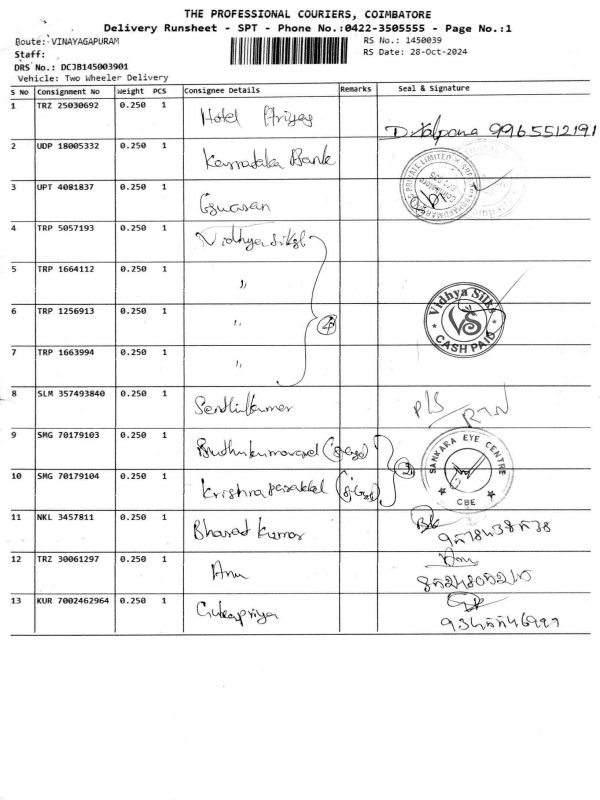 THE PROFESSIONAL COURIERS, COIMBATORE
Delivery Runsheet - SPT - Phone No.:0422-3505555 - Page No.:1
Route: VINAYAGAPURAM
RS No.: 1450039
Staff:
RS Date: 28-Oct-2024
DRS No.: DCJB145003901
Vehicle: Two Wheeler Delivery
S No Consignment No Weight PCS Consignee Details Remarks Seal & Signature
1 TRZ 25030692 0.250 1 Hotel 9965512191
2 UDP 18005332 0.250 1 Karnataka Bank
PRIVATE LIMITED
3 UPT 4081837 0.250 1
4 TRP 5057193 0.250 1 Vidhya
5 TRP 1664112 0.250 1 "
6 TRP 1256913 0.250 1 " 4
Vidhya Silks
VS
CASH PAID
7 TRP 1663994 0.250 1 "
8 SLM 357493840 0.250 1 Senthilkumar P/S RTN
9 SMG 70179103 0.250 1
SANKARA EYE CENTRE
CBE
10 SMG 70179104 0.250 1 2
11 NKL 3457811 0.250 1 Bharad Kumar
12 TRZ 30061297 0.250 1 Anu Anu
13 KUR 7002462964 0.250 1